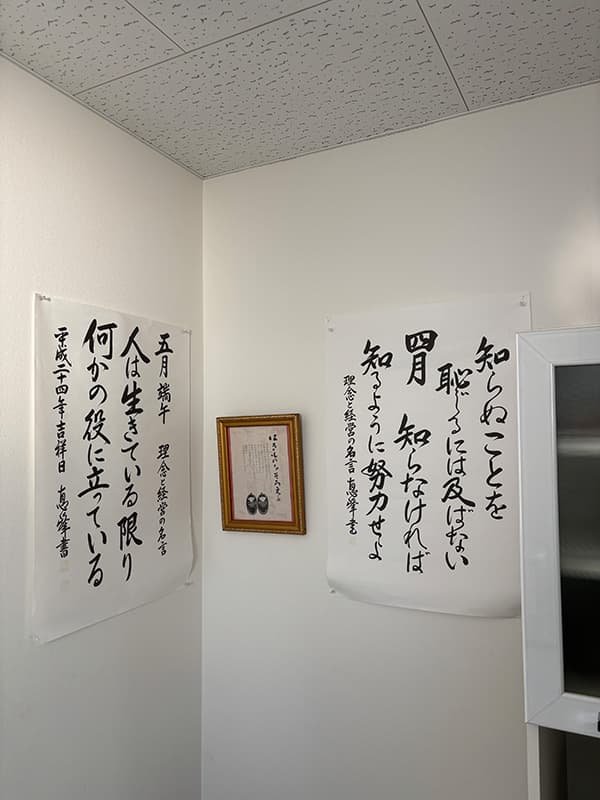 五月 端午 理念と経営の名言
人は生きている限り
何かの役に立っている
平成二十四年 吉祥日 恵峰書
はきものをそろえる
知らぬことを
恥じるには及ばない
四月 知らなければ
知るように努力せよ
理念と経営の名言 恵峰書